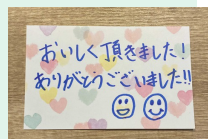 おいしく頂きました!
ありがとうございました!!